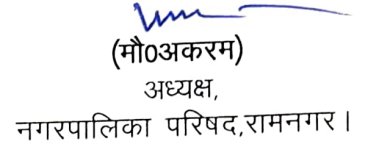 (मौ0अकरम)
अध्यक्ष,
नगरपालिका परिषद,रामनगर।